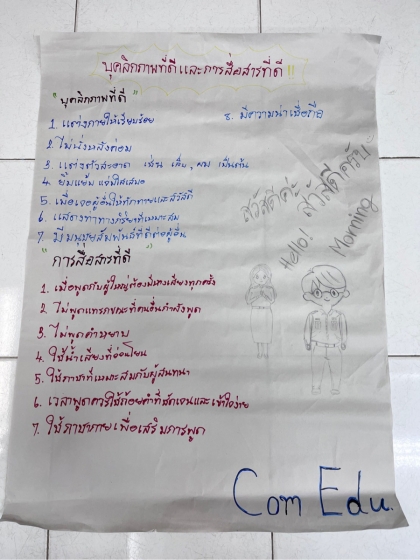 บุคลิกภาพที่ดีและการสื่อสารที่ดี !!
"บุคลิกภาพที่ดี"
1. แต่งกายให้เรียบร้อย
2. ไม่นั่งหลังค่อม
3. แต่งตัวสะอาด เช่น เล็บ, ผม เป็นต้น
4. ยิ้มแย้ม แจ่มใสเสมอ
5. เมื่อเจอผู้อื่นให้ทักทายและสวัสดี
6. แสดงท่าทางกิริยาที่เหมาะสม
7. มีมนุษยสัมพันธ์ที่ดีต่อผู้อื่น
8. มีความน่าเชื่อถือ
"การสื่อสารที่ดี"
1. เมื่อพูดกับผู้ใหญ่ต้องมีหางเสียงทุกครั้ง
2. ไม่พูดแทรกขณะที่คนอื่นกำลังพูด
3. ไม่พูดคำหยาบ
4. ใช้น้ำเสียงที่อ่อนโยน
5. ใช้ภาษาที่เหมาะสมกับผู้สนทนา
6. เวลาพูดควรใช้ถ้อยคำที่ชัดเจนและเข้าใจง่าย
7. ใช้ภาษากายเพื่อเสริมการพูด
สวัสดีค่ะ
สวัสดีครับ
Hello!
Morning
Com Edu.